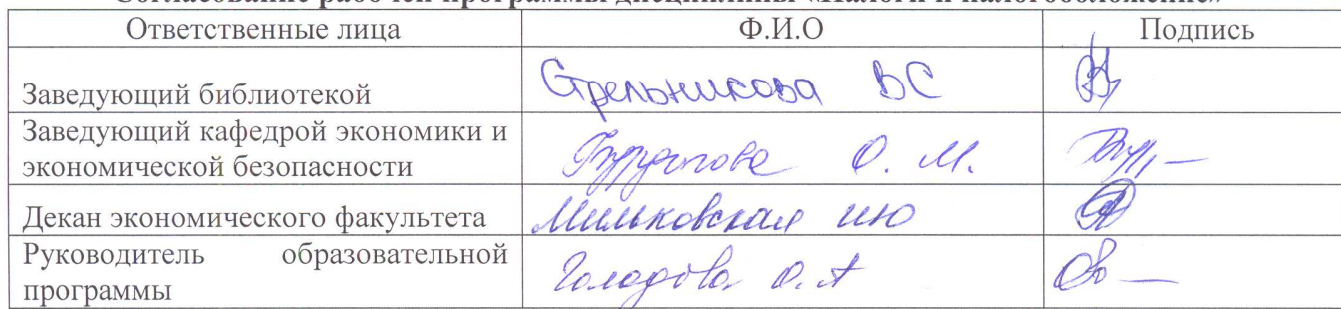 Согласование рабочей программы дисциплины «Налоги и налогообложение»
Ответственные лица Ф.И.О Подпись
Заведующий библиотекой Стрельникова ВС
Заведующий кафедрой экономики и
экономической безопасности О. М.
Декан экономического факультета Мильковская ИЮ
Руководитель образовательной
программы О.А